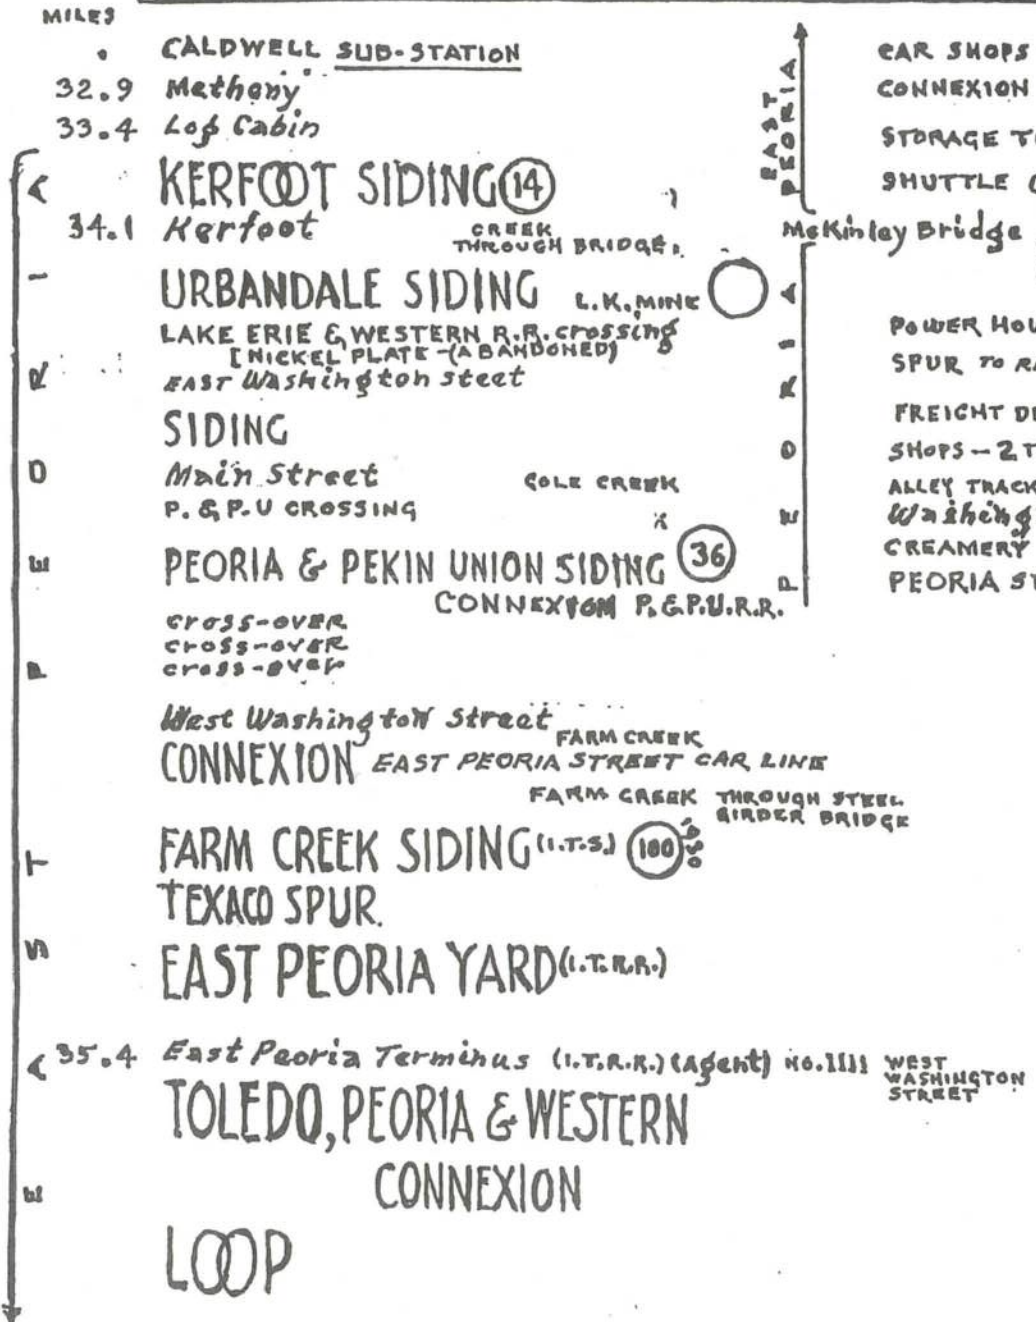 MILES
CALDWELL SUB-STATION
32.9 Methony
33.4 Log Cabin
KERFOOT SIDING 14
34.1 Kerfoot
CREEK
THROUGH BRIDGE.
URBANDALE SIDING L.K. MINE
LAKE ERIE & WESTERN R.R. crossing
[NICKEL PLATE-(ABANDONED)
EAST Washington steet
SIDING
Main Street COLE CREEK
P. & P.U CROSSING X
PEORIA & PEKIN UNION SIDING 36
CONNEXION P.&P.U.R.R.
cross-OVER
cross-OVER
cross-over
West Washington Street
FARM CREEK
CONNEXION EAST PEORIA STREET CAR LINE
FARM CREEK THROUGH STEEL
GIRDER BRIDGE
FARM CREEK SIDING (I.T.S.) 100
TEXACO SPUR.
EAST PEORIA YARD (I.T.R.R.)
35.4 East Peoria Terminus (I.T.R.R.) (Agent) No.1111 WEST
WASHINGTON
STREET
TOLEDO, PEORIA & WESTERN
CONNEXION
LOOP
EAST PEORIA
EAST
PEORIA
CAR SHOPS
CONNEXION
STORAGE
SHUTTLE
McKinley Bridge
PEORIA
POWER
SPUR TO
FREIGHT
SHOPS - 2
ALLEY TRACK
Washing
CREAMERY
PEORIA